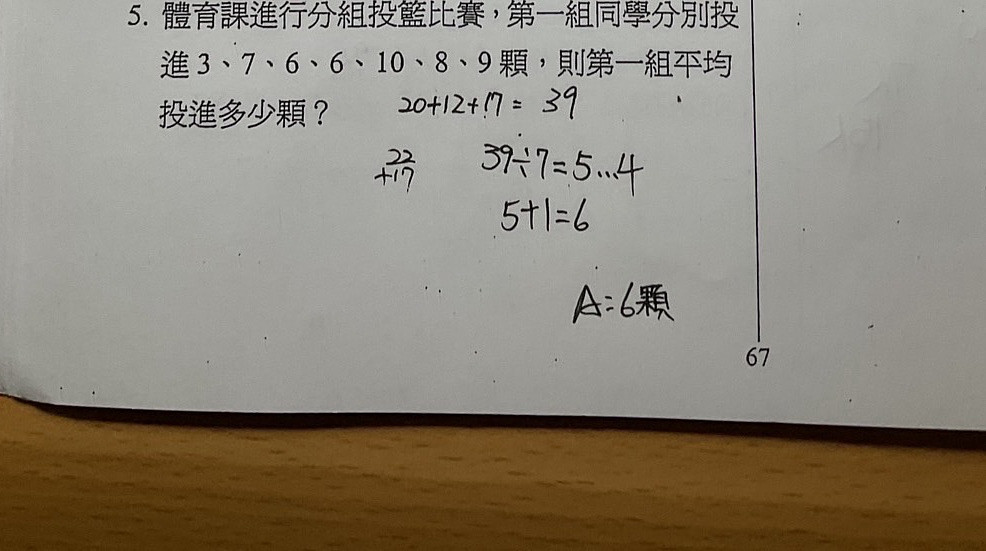 5. 體育課進行分組投籃比賽，第一組同學分別投
進 3、7、6、6、10、8、9 顆，則第一組平均
投進多少顆？
20+12+17 = 39
22
+17
39÷7=5...4
5+1=6
A=6顆
67